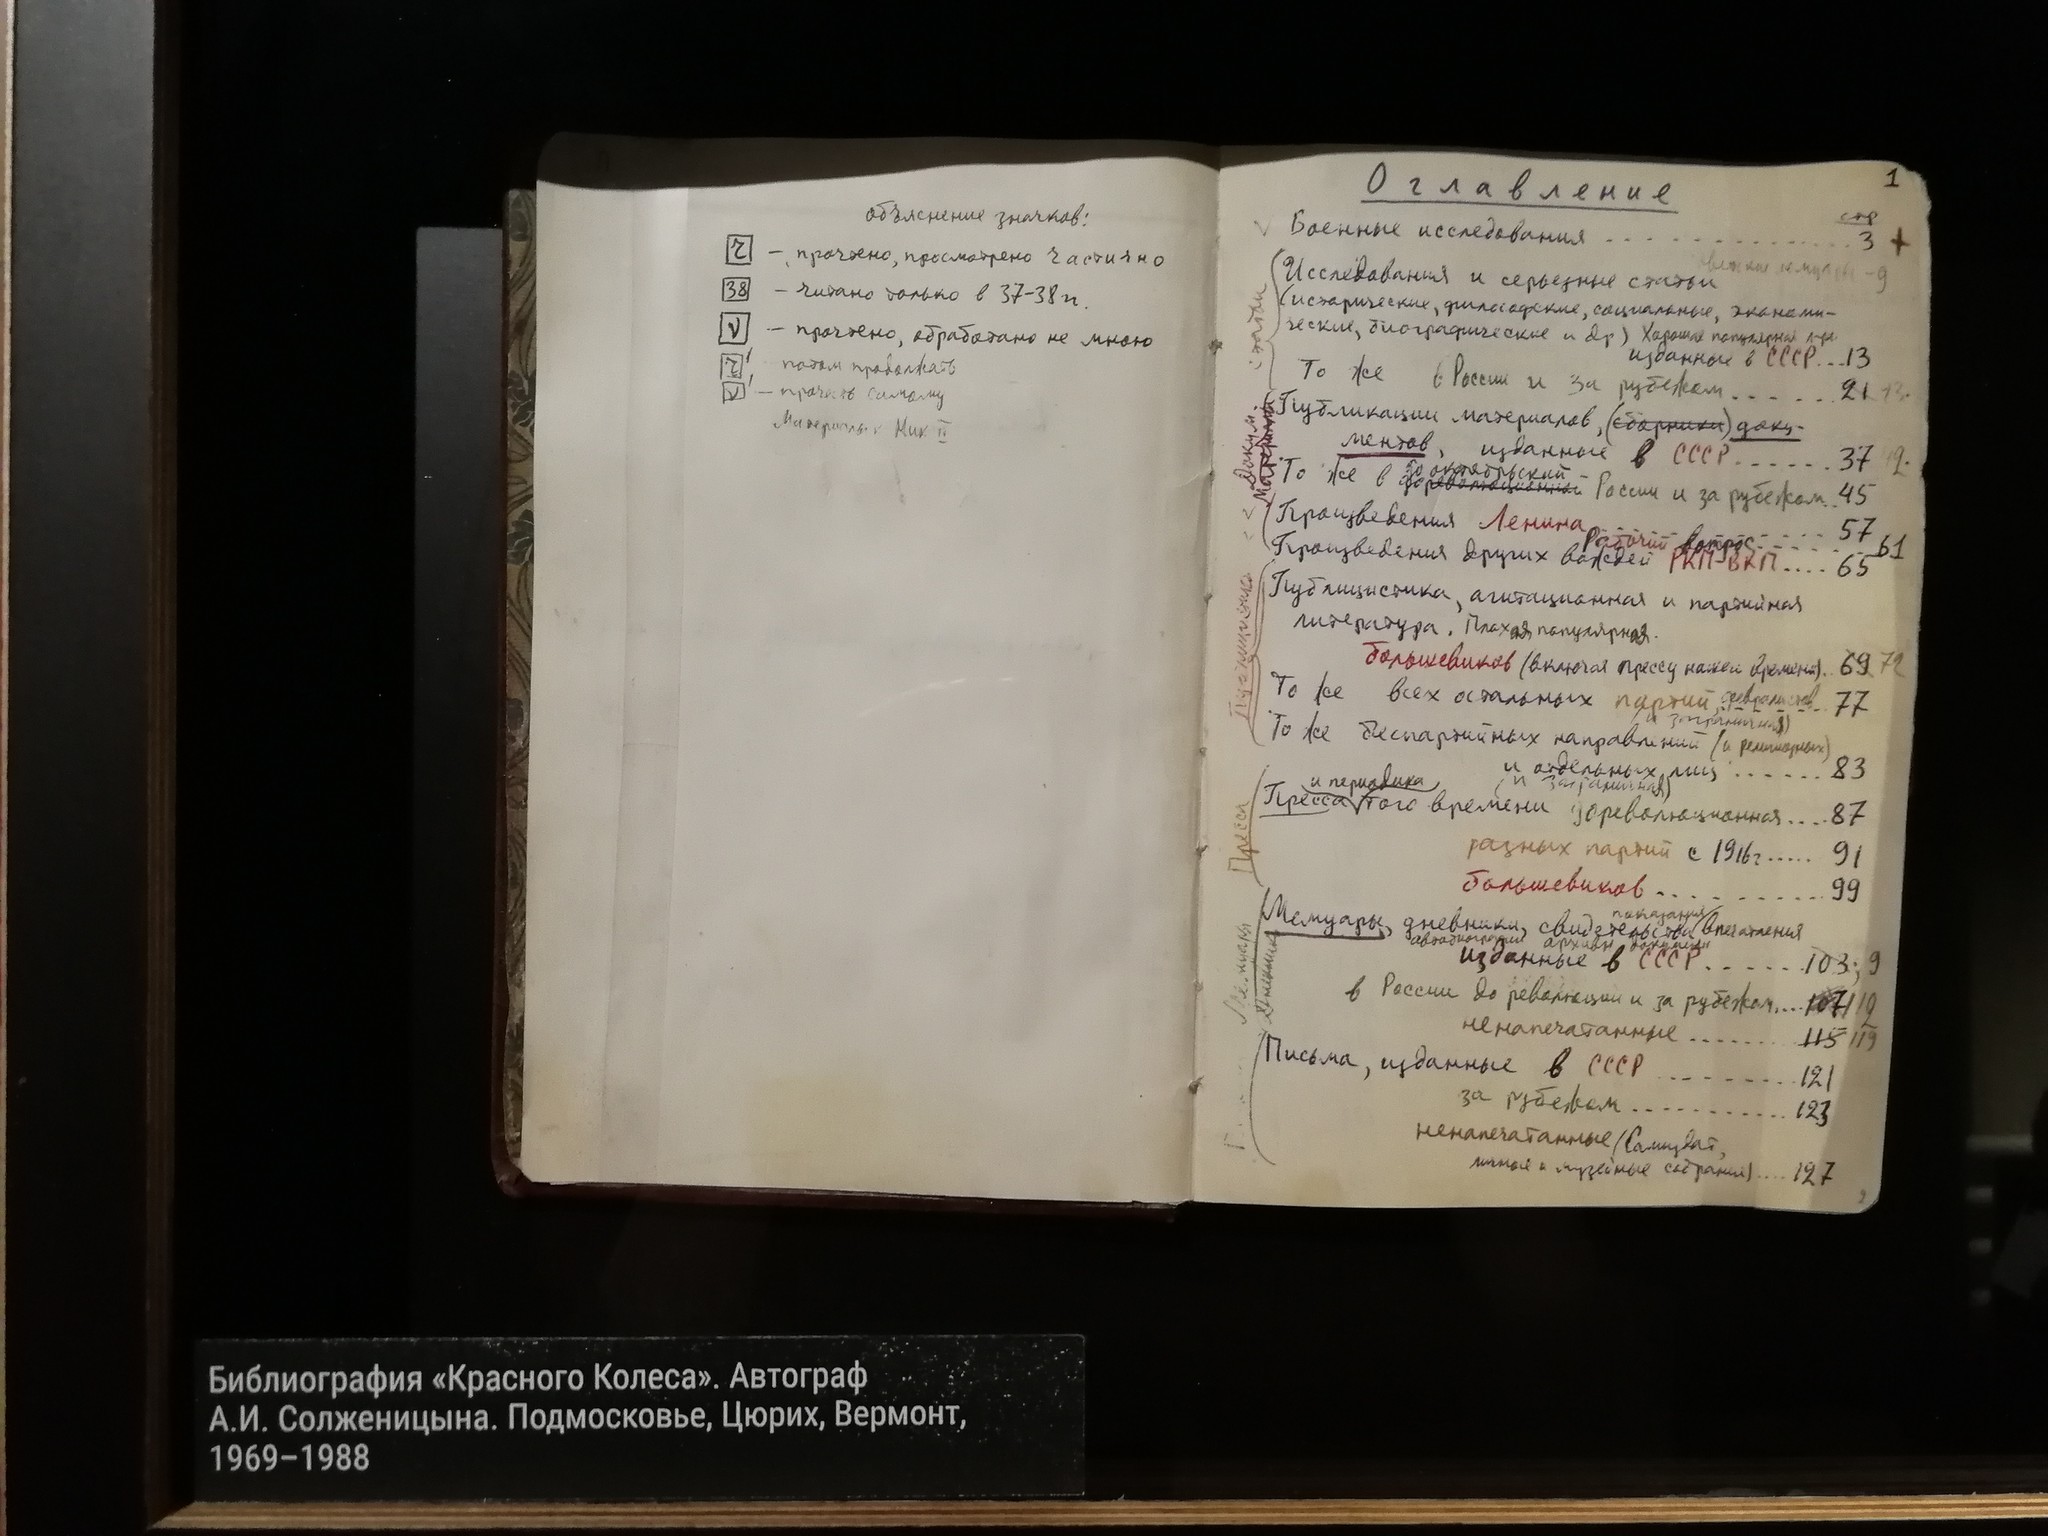 объяснение значков:
ч – прочтено, просмотрено частично
38 – читано только в 37-38 г.
V – прочтено, обработано не мною
ч! потом продолжать
V! – прочесть самому
Ник II
1
Оглавление
стр
Военные исследования 3 +
– 9
Исследования и серьезные статьи
(исторические, философские, социальные, экономи-
ческие, биографические и др) Хорошая популярная л-ра
изданные в СССР...13
То же в России и за рубежом 21
Публикации материалов, (сборники) доку-
ментов, изданные в СССР 37
То же в дореволюционной до октябрьский России и за рубежом 45
Произведения Ленина 57
Рабочий вопрос 61
Произведения других вождей РКП-ВКП.... 65
Публицистика, агитационная и партийная
литература. Плохая популярная.
большевиков (включая прессу нашей времени).. 69 72
То же всех остальных партий, 77
(и заграничная)
То же беспартийных направлений (и религиозных)
и отдельных лиц 83
(и заграничная)
и периодика
Пресса того времени дореволюционная.... 87
разных партий с 1916 г..... 91
большевиков 99
показания
Мемуары, дневники, свидетельства впечатления
автобиографии архивн документы
изданные в СССР 103; 9
в России до революции и за рубежом... 107
ненапечатанные 115 119
Письма, изданные в СССР 121
за рубежом 123
ненапечатанные (Самиздат,
личные и музейные собрания).... 127
статьи
докум.
Материалы
Публицистика
Пресса
Мемуары
Дневники
Библиография «Красного Колеса». Автограф
А.И. Солженицына. Подмосковье, Цюрих, Вермонт,
1969–1988